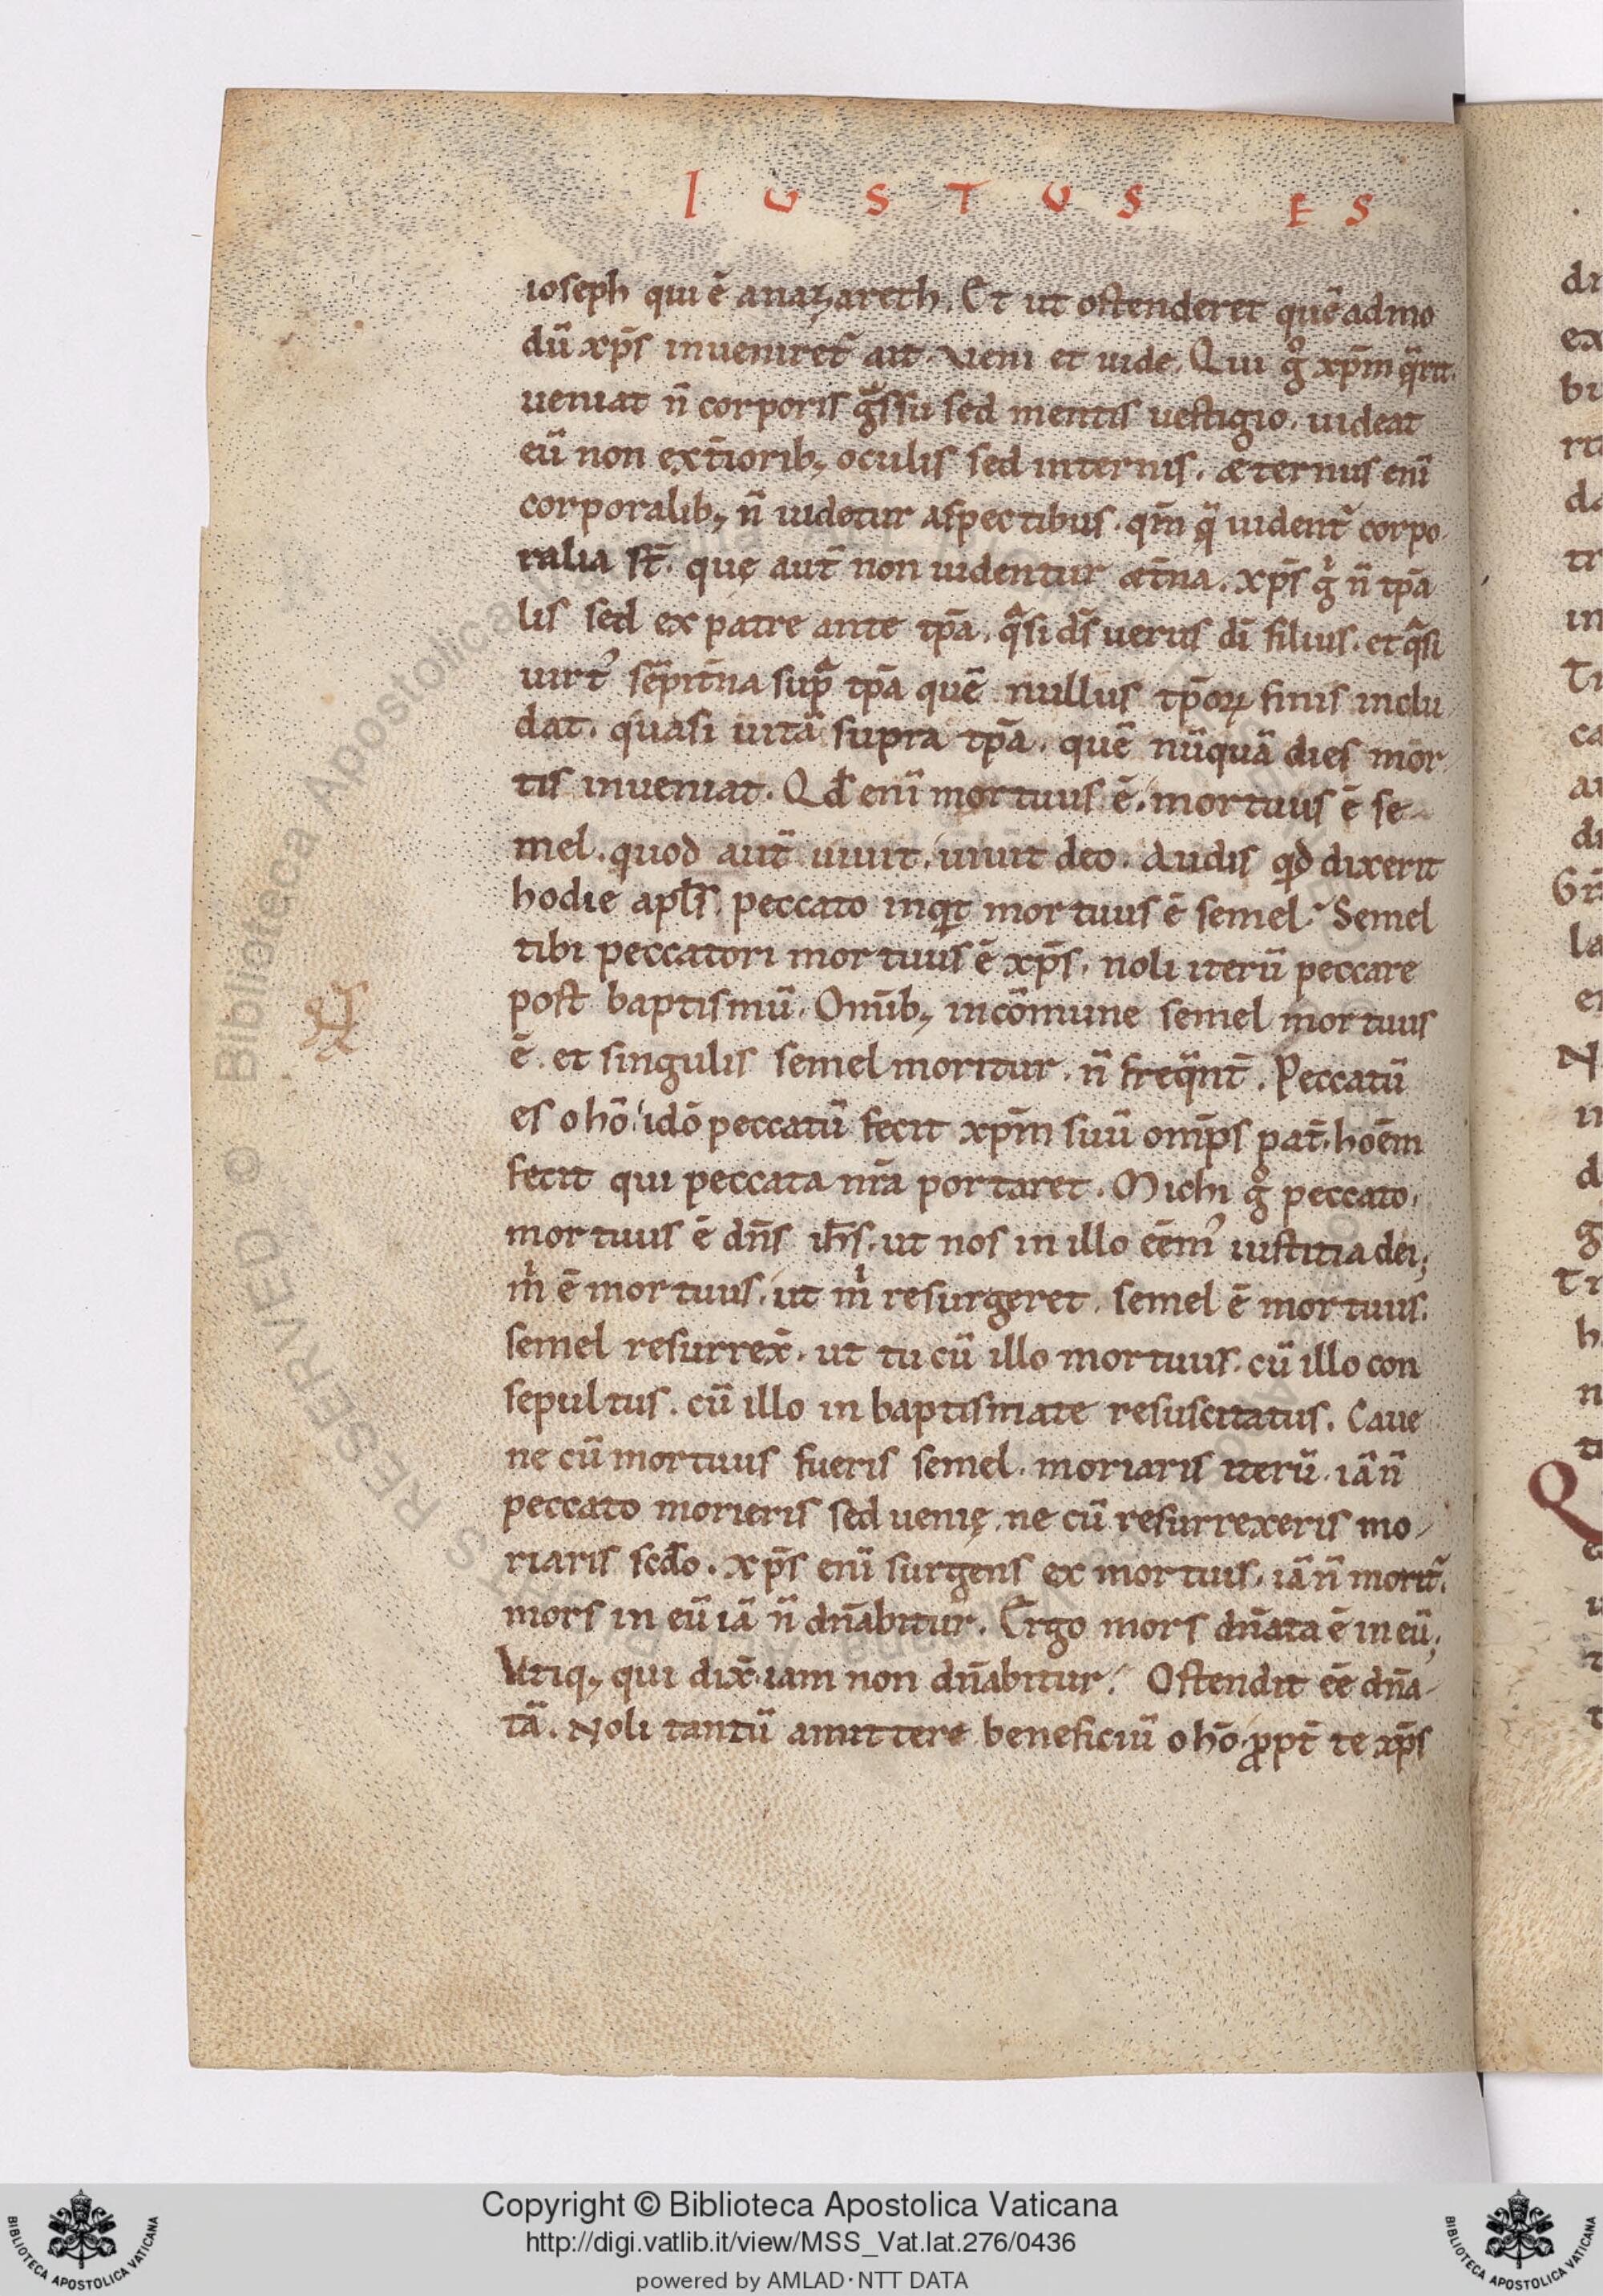 IUSTUS ES
ioseph qui ē anazareth. Et ut ostenderet quē admo
dū xp̄s inueniret᷑ ait. Veni et uide. Qui gͦ xp̄m qᷓrit.
ueniat n̄ corporis gᷓssu sed mentis uestigio. uideat
eū non ext̄iorib; oculis sed internis. æternus eni̅
corporalib; n̄ uidetur aspectibus. qm̄ qᷓ uident᷑ corpo
ralia st̄. quę aut̄ non uidentur æt̄na. xp̄s gͥ n̄ tp̄a
lis sed ex patre ante tp̄a. qᷓsi ds̄ uerus dī filius. et qᷓsi
uirt᾽ sēpit̄na supᷓ tp̄a quē nullus tp̄oꝝ finis inclu
dat. quasi uitā supra tp̄a. quē nūquā dies mor
tis inueniat. Qd̄ enī mortuus ē. mortuus ē se
mel. quod aut̄ uiuit. uiuit deo. Audis qͥd dixerit
hodie apl̄s. peccato inqͥt mortuus ē semel. Semel
tibi peccatori mortuus ē xp̄s. noli iterū peccare
post baptismū. Om̄ib; incōmune semel mortuus
ē. et singulis semel moritur. n̄ freqᷓnt̄. Peccatū
es o hō. idō peccatū fecit xp̄m suū omp̄s pat̄. hoēm
fecit qui peccata nr̄a portaret. Michi gͦ peccato
mortuus ē dn̄s ih̄s. ut nos in illo eēm᾽ iustitia dei;
mͥ ē mortuus. ut mͥ resurgeret. semel ē mortuus.
semel resurrex̄. ut tu cū illo mortuus. cū illo con
sepultus. cū illo in baptismate resuscitatus. Caue
ne cū mortuus fueris semel. moriaris iterū. iā n̄
peccato morieris sed uenię. ne cū resurrexeris mo
riaris scd̄o. xp̄s enī surgens ex mortuis. iā n̄ morit᷑.
mors in eū iā n̄ dn̄abitur. Ergo mors dn̄ata ē in eū;
Vtiq; qui dix̄. iam non dn̄abitur. Ostendit eē dn̄a
tā. Noli tantū amittere beneficiū o hō. ꝓpt̄ te xp̄s
Copyright © Biblioteca Apostolica Vaticana
http://digi.vatlib.it/view/MSS_Vat.lat.276/0436
powered by AMLAD·NTT DATA
BIBLIOTECA APOSTOLICA VATICANA
BIBLIOTECA APOSTOLICA VATICANA